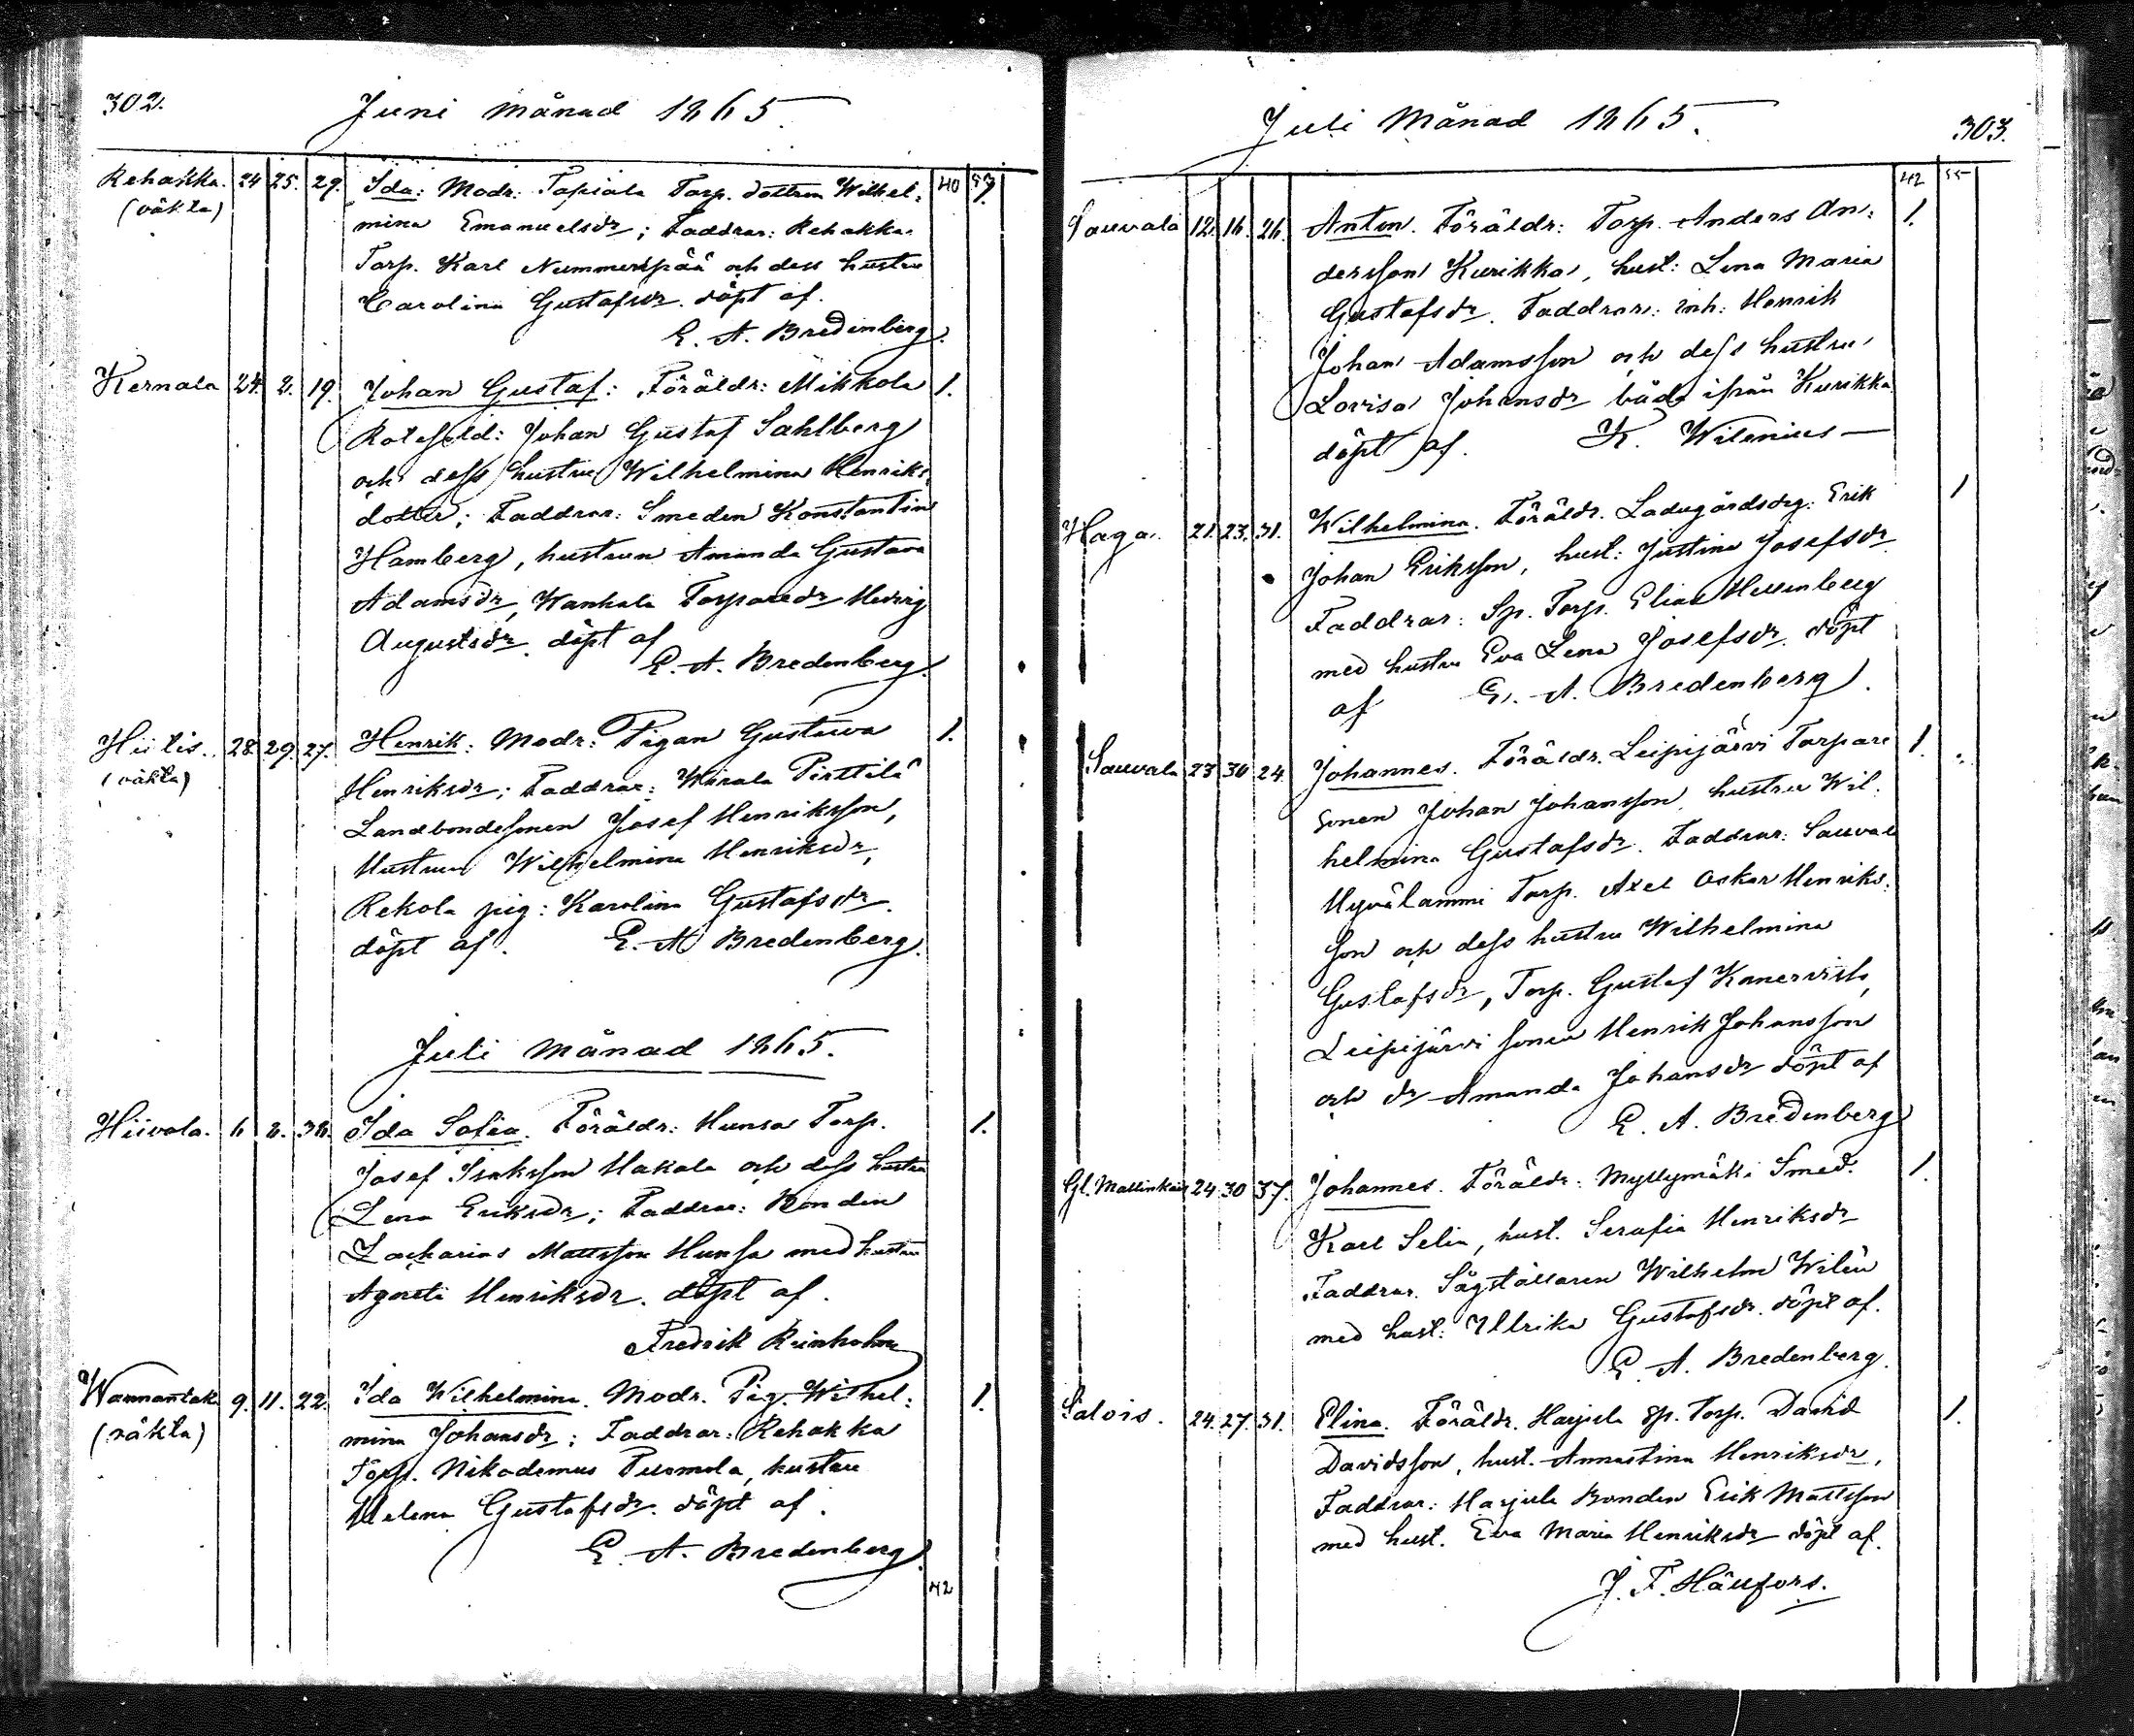 302.
Juni Månad 1865.
Rehakka. 24 25. 29. Ida: Modr. Topiala Torp. dottren Wilhel= 40 53
(oäkta) mina Emanuelsdr; Faddrar: Rehakka
Torp. Karl Nummenpää och dess hustru
Carolina Gustafsdr. döpt af.
E. A. Bredenberg.
Kernala 24. 2. 19. Johan Gustaf: Föräldr: Mikkola 1.
Roteseld: Johan Gustaf Sahlberg
och dess hustru Wilhelmina Henriks
dotter; Faddrar: Smeden Konstantin
Hamberg, hustrun Amanda Gustava
Adamsdr, Wanhala Torparedr Hedvig
Augustsdr. döpt af
E. A. Bredenberg.
Hiitis. 28. 29. 27. Henrik: Modr: Pigan Gustava 1.
(oäkta) Henriksdr; Faddrar: Pirttilä
Landbondesonen Josef Henriksson,
Hustrun Wilhelmina Henriksdr,
Rekola pig: Karolina Gustafsdr.
döpt af. E. A. Bredenberg.
Juli Månad 1865.
Hiivola. 6 8. 38. Ida Sofia. Föräldr: Hunsa Torp. 1.
Josef Isaksson Hakala och dess hustru
Lena Eriksdr; Faddrar: Bonden
Zacharias Mattsson Hunsa med hustru
Agneta Henriksdr. döpt af.
Fredrik Reinholm
9. 11. 22. Ida Wilhelmina. Modr. Pig. Wilhel= 1.
(oäkta) mina Johansdr; Faddrar: Rehakka
Torp. Nikodemus Tuomola, hustru
Helena Gustafsdr. döpt af.
E. A. Bredenberg.
42
Juli Månad 1865.
303.
42 55
Sauvala 12. 16. 26. Anton. Föräldr: Torp. Anders An= 1.
dersson Kurikka, hust: Lena Maria
Gustafsdr. Faddrar: inh: Henrik
Johan Adamsson och dess hustru
Lovisa Johansdr båda ifrån Kurikka
döpt af. K. Wilenius
Haga. 21. 23. 31. Wilhelmina. Föräldr. Ladugårdsdrg: Erik 1
Johan Eriksson, hust: Justina Josefsdr
Faddrar: Sp. Torp. Elias Hellenberg
med hustru Eva Lena Josefsdr. döpt
af E. A. Bredenberg.
Sauvala 23 30 24. Johannes. Föräldr. Leipijärvi Torpare 1.
sonen Johan Johansson, hustru Wil=
helmina Gustafsdr. Faddrar: Sauvala
Hyvälammi Torp. Axel Oskar Henriks=
son och dess hustru Wilhelmina
Gustafsdr, Torp. Gustaf Kanervisto,
Leipijärvi sonen Henrik Johansson
och dr Amanda Johansdr döpt af
E. A. Bredenberg
Gl. Mallinkais 24. 30 37. Johannes. Föräldr: Myllymäki Smed. 1.
Karl Selin, hust. Serafia Henriksdr
Faddrar. Sågställaren Wilhelm Wilén
med hust: Ullrika Gustafsdr. döpt af.
E. A. Bredenberg.
Salois. 24. 27. 31. Elina. Föräldr. Harjula Sp. Torp. David 1.
Davidsson, hust. Annastina Henriksdr,
Faddrar: Harjula Bonden Erik Mattsson
med hust. Eva Maria Henriksdr döpt af.
J. F. Hällfors.